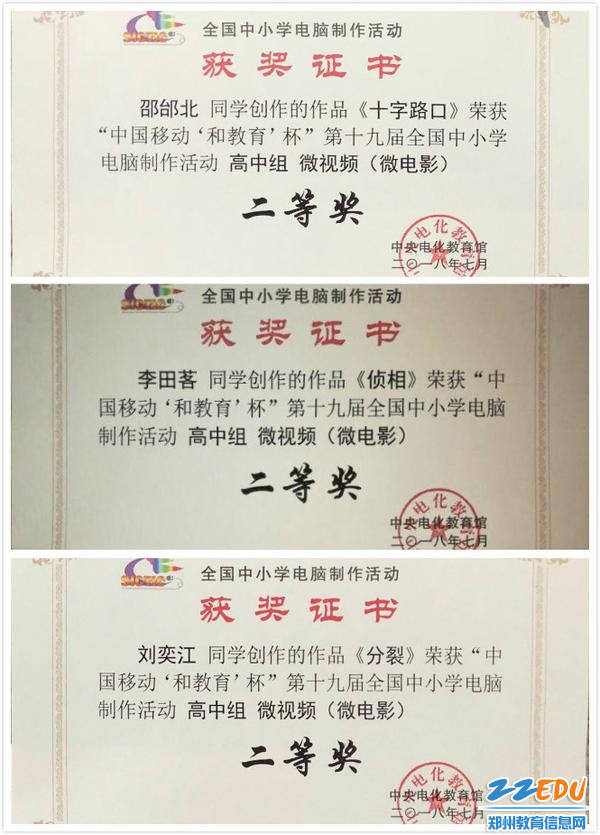 全国中小学电脑制作活动
获奖证书
邵邰北 同学创作的作品《十字路口》荣获
“中国移动‘和教育’杯”第十九届全国中小学
电脑制作活动 高中组 微视频（微电影）
二等奖
中央电化教育馆
二〇一八年七月
全国中小学电脑制作活动
获奖证书
李田茖 同学创作的作品《侦相》荣获“中
国移动‘和教育’杯”第十九届全国中小学电脑
制作活动 高中组 微视频（微电影）
二等奖
中央电化教育馆
二〇一八年七月
全国中小学电脑制作活动
获奖证书
刘奕江 同学创作的作品《分裂》荣获“中
国移动‘和教育’杯”第十九届全国中小学电脑
制作活动 高中组 微视频（微电影）
二等奖
中央电化教育馆
二〇一八年七月
ZZEDU
郑州教育信息网